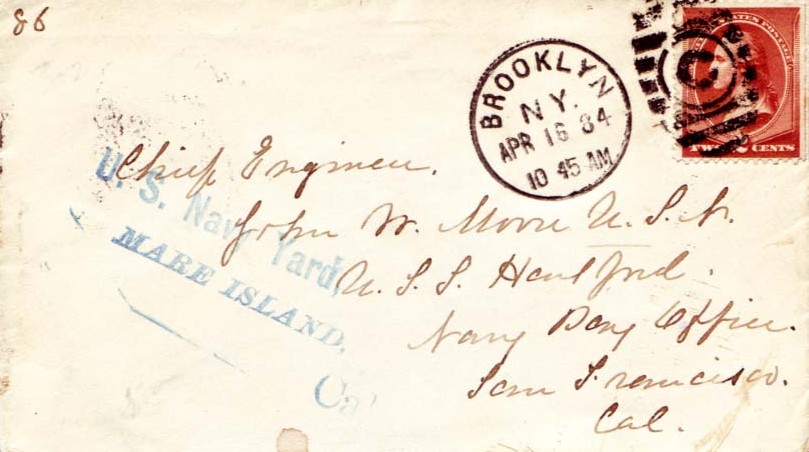 86
BROOKLYN
N.Y.
APR 16 84
10 45 AM
C
TWO 2 CENTS
Chief Engineer.
John W. Moore U.S.N.
U.S.S. Hartford.
Navy Pay Office.
San Francisco.
Cal.
U. S. Navy Yard,
MARE ISLAND,
Cal